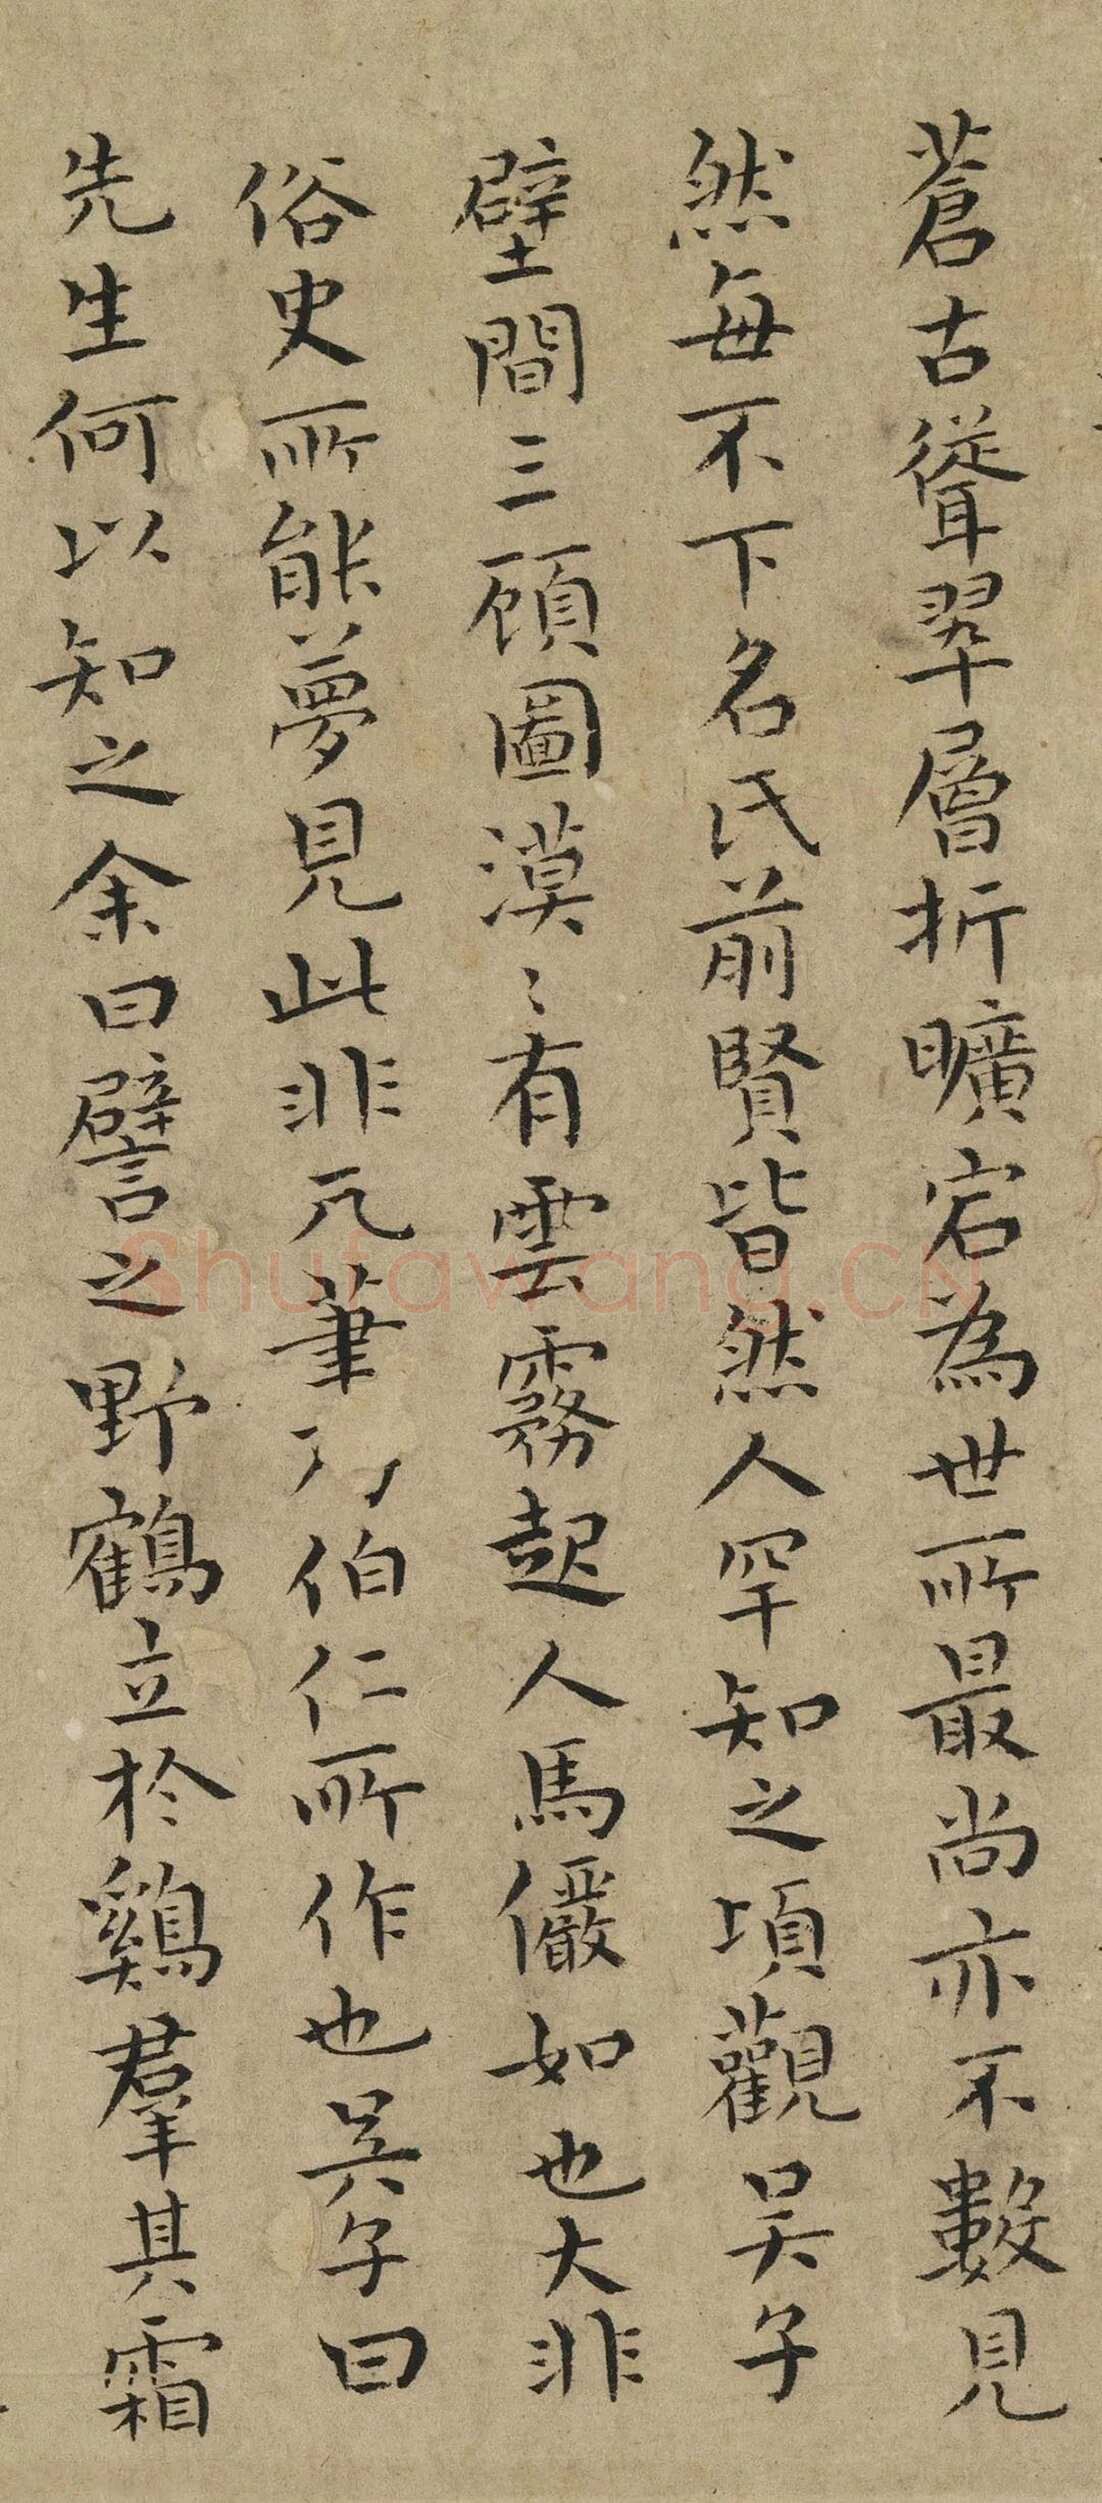 蒼古聳翆層折曠宕為世所最尚亦不數見
然每不下名氏前賢皆然人罕知之頃觀吴子
壁間三顧圖漠〻有雲霧起人馬儼如也大非
俗史所能夢見此非凡筆乃伯仁所作也吴子曰
先生何以知之余曰譬之野鶴立於鷄羣其霜
Shufawang.CN